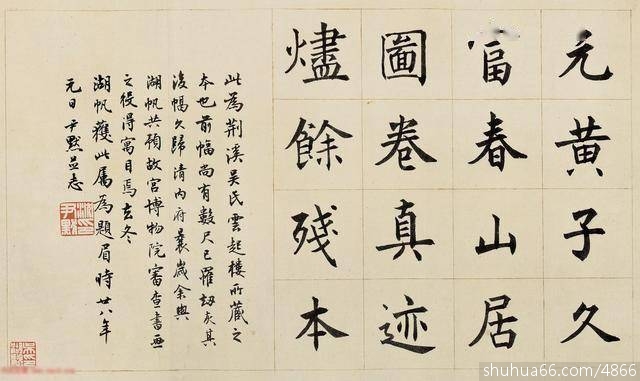 元黄子久
富春山居
圖卷真迹
燼餘殘本
此為荆溪吴氏雲起樓所藏之
本也前幅尚有數尺已罹劫灰其
後幅久歸清内府曩歲余與
湖帆共預故宫博物院審查書画
之役得寓目焉去冬
湖帆獲此属為題眉時廿八年
元日尹默並志
shuhua66.com/4866